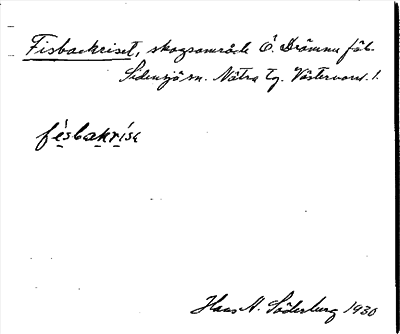 Fisbackriset, skogsområde Ö. Drömme fäb.
Sidensjö sn. Nätra tg. Västernorrl. l.
fèsbakrísę
Hans A. Söderberg 1930